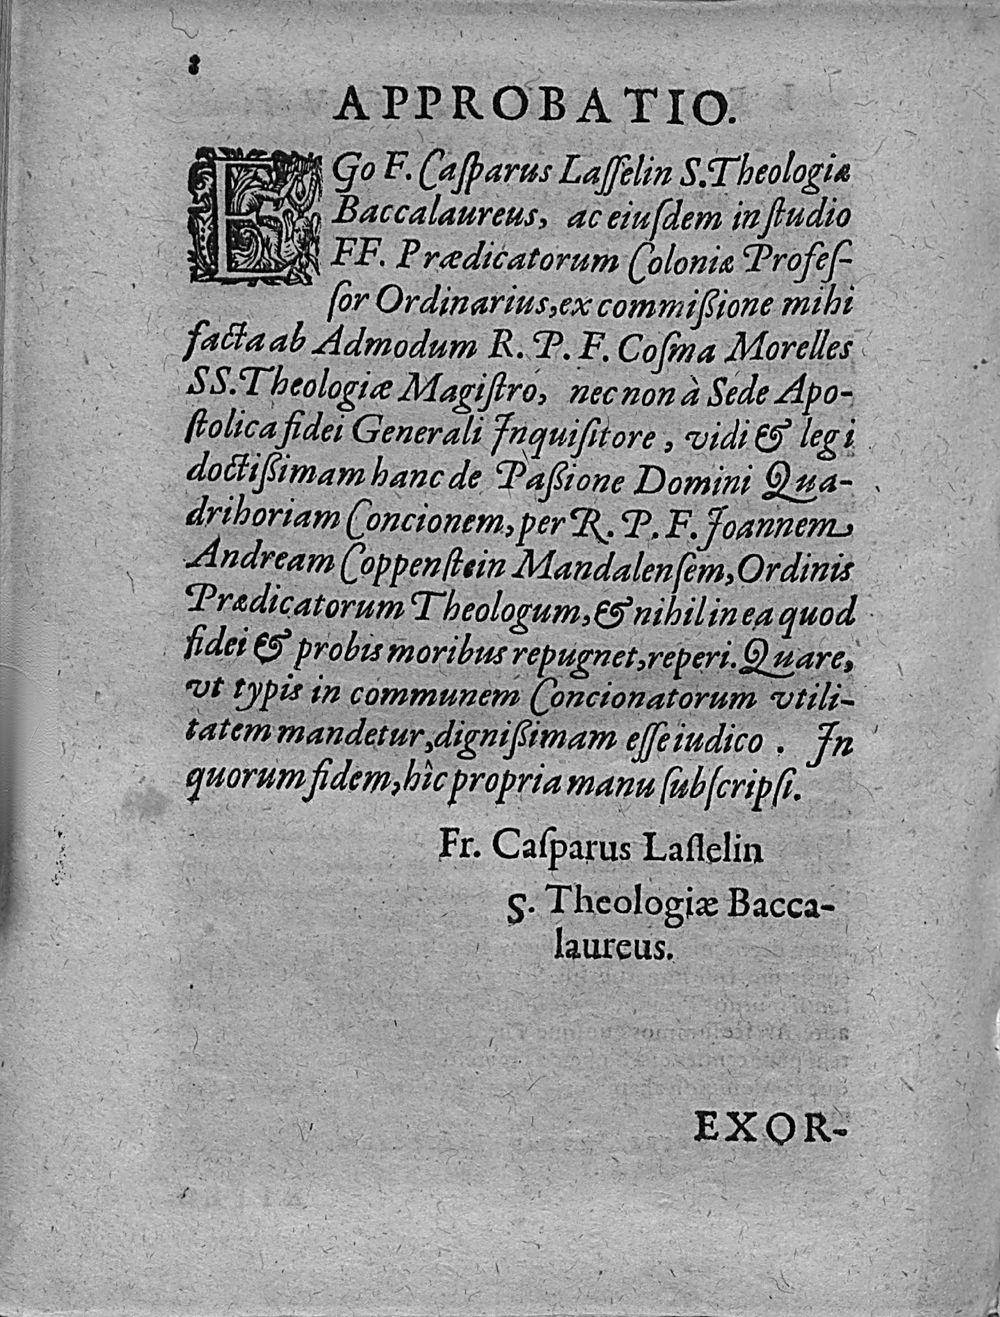 8
APPROBATIO.
EGo F. Caſparus Laſſelin S. Theologiæ
Baccalaureus, ac eiuſdem in ſtudio
FF. Prædicatorum Coloniæ Profeſ-
ſor Ordinarius, ex commiſſione mihi
facta ab Admodum R. P. F. Coſma Morelles
SS. Theologiæ Magiſtro, nec non à Sede Apo-
ſtolica fidei Generali Inquiſitore, vidi & legi
doctiſſimam hanc de Paſſione Domini Qua-
drihoriam Concionem, per R. P. F. Joannem
Andream Coppenſtein Mandalenſem, Ordinis
Prædicatorum Theologum, & nihil in ea quod
fidei & probis moribus repugnet, reperi. Quare,
vt typis in communem Concionatorum vtili-
tatem mandetur, digniſſimam eſſe iudico. In
quorum fidem, hîc propria manu ſubſcripſi.
Fr. Caſparus Laſſelin
S. Theologiæ Bacca-
laureus.
EXOR-